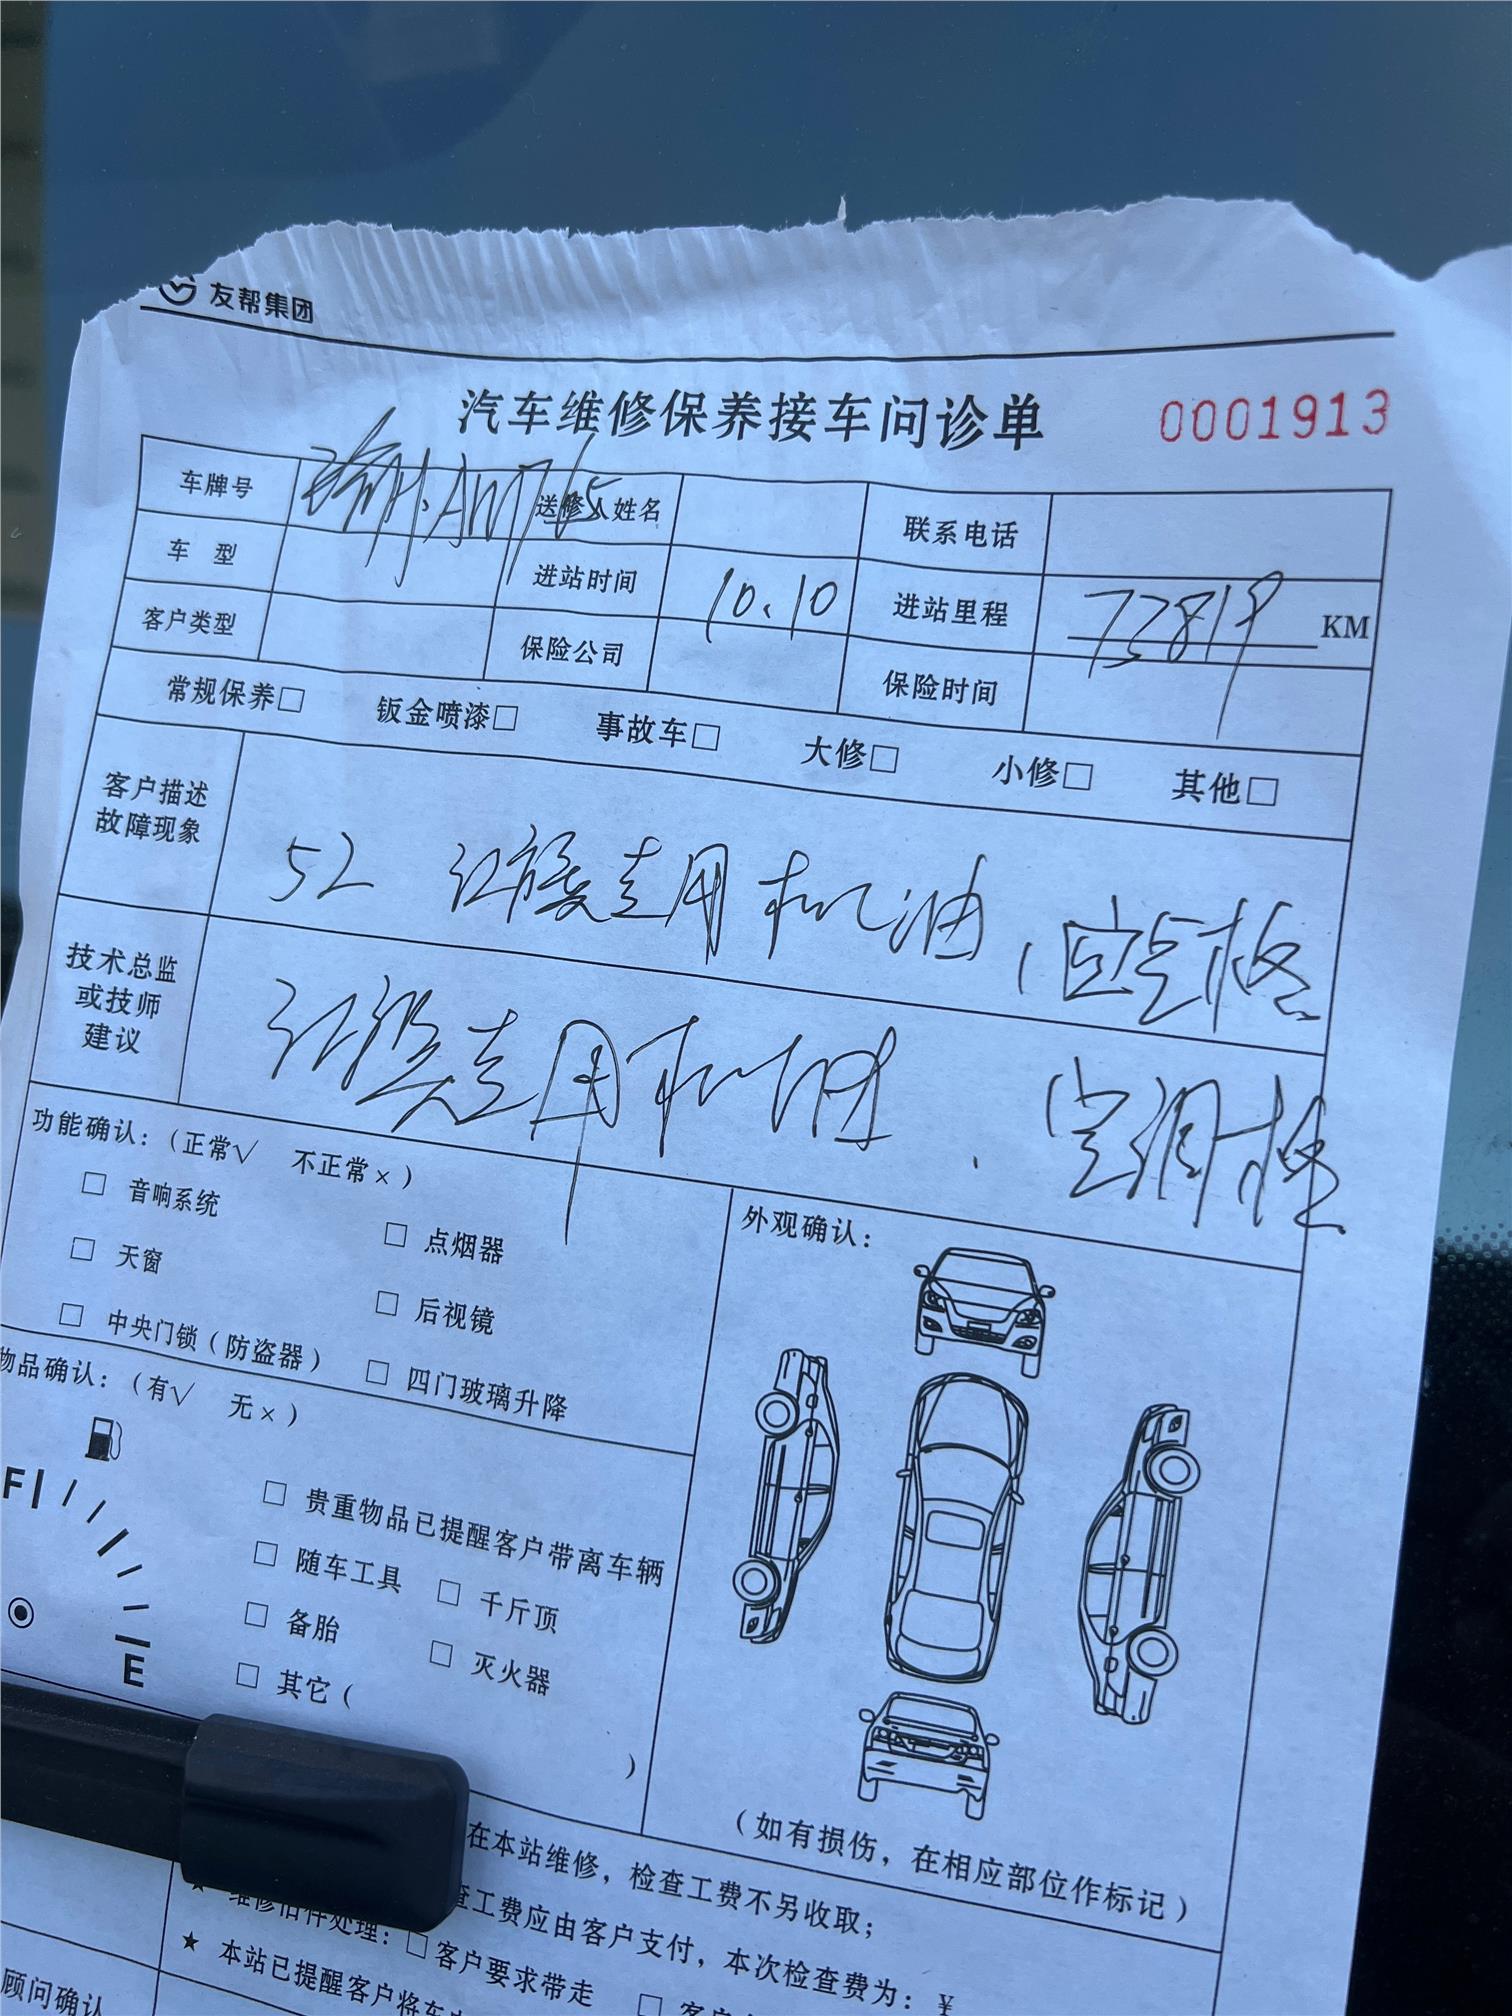 友帮集团
汽车维修保养接车问诊单 0001913
车牌号 送修人姓名 联系电话
车 型 进站时间 10.10 进站里程 73819 KM
客户类型 保险公司 保险时间
常规保养□ 钣金喷漆□ 事故车□ 大修□ 小修□ 其他□
客户描述
故障现象
5L 江淮专用机油、空气格
技术总监
或技师
建议
江淮专用机油、空调格
功能确认：（正常√ 不正常×）
□ 音响系统 □ 点烟器
□ 天窗 □ 后视镜
□ 中央门锁（防盗器） □ 四门玻璃升降
外观确认：
物品确认：（有√ 无×）
F
E
□ 贵重物品已提醒客户带离车辆
□ 随车工具 □ 千斤顶
□ 备胎 □ 灭火器
□ 其它（ ）
（如有损伤，在相应部位作标记）
在本站维修，检查工费不另收取；
查工费应由客户支付，本次检查费为：¥
★ 维修旧件处理：□客户要求带走 □ 客户
★ 本站已提醒客户将车
顾问确认